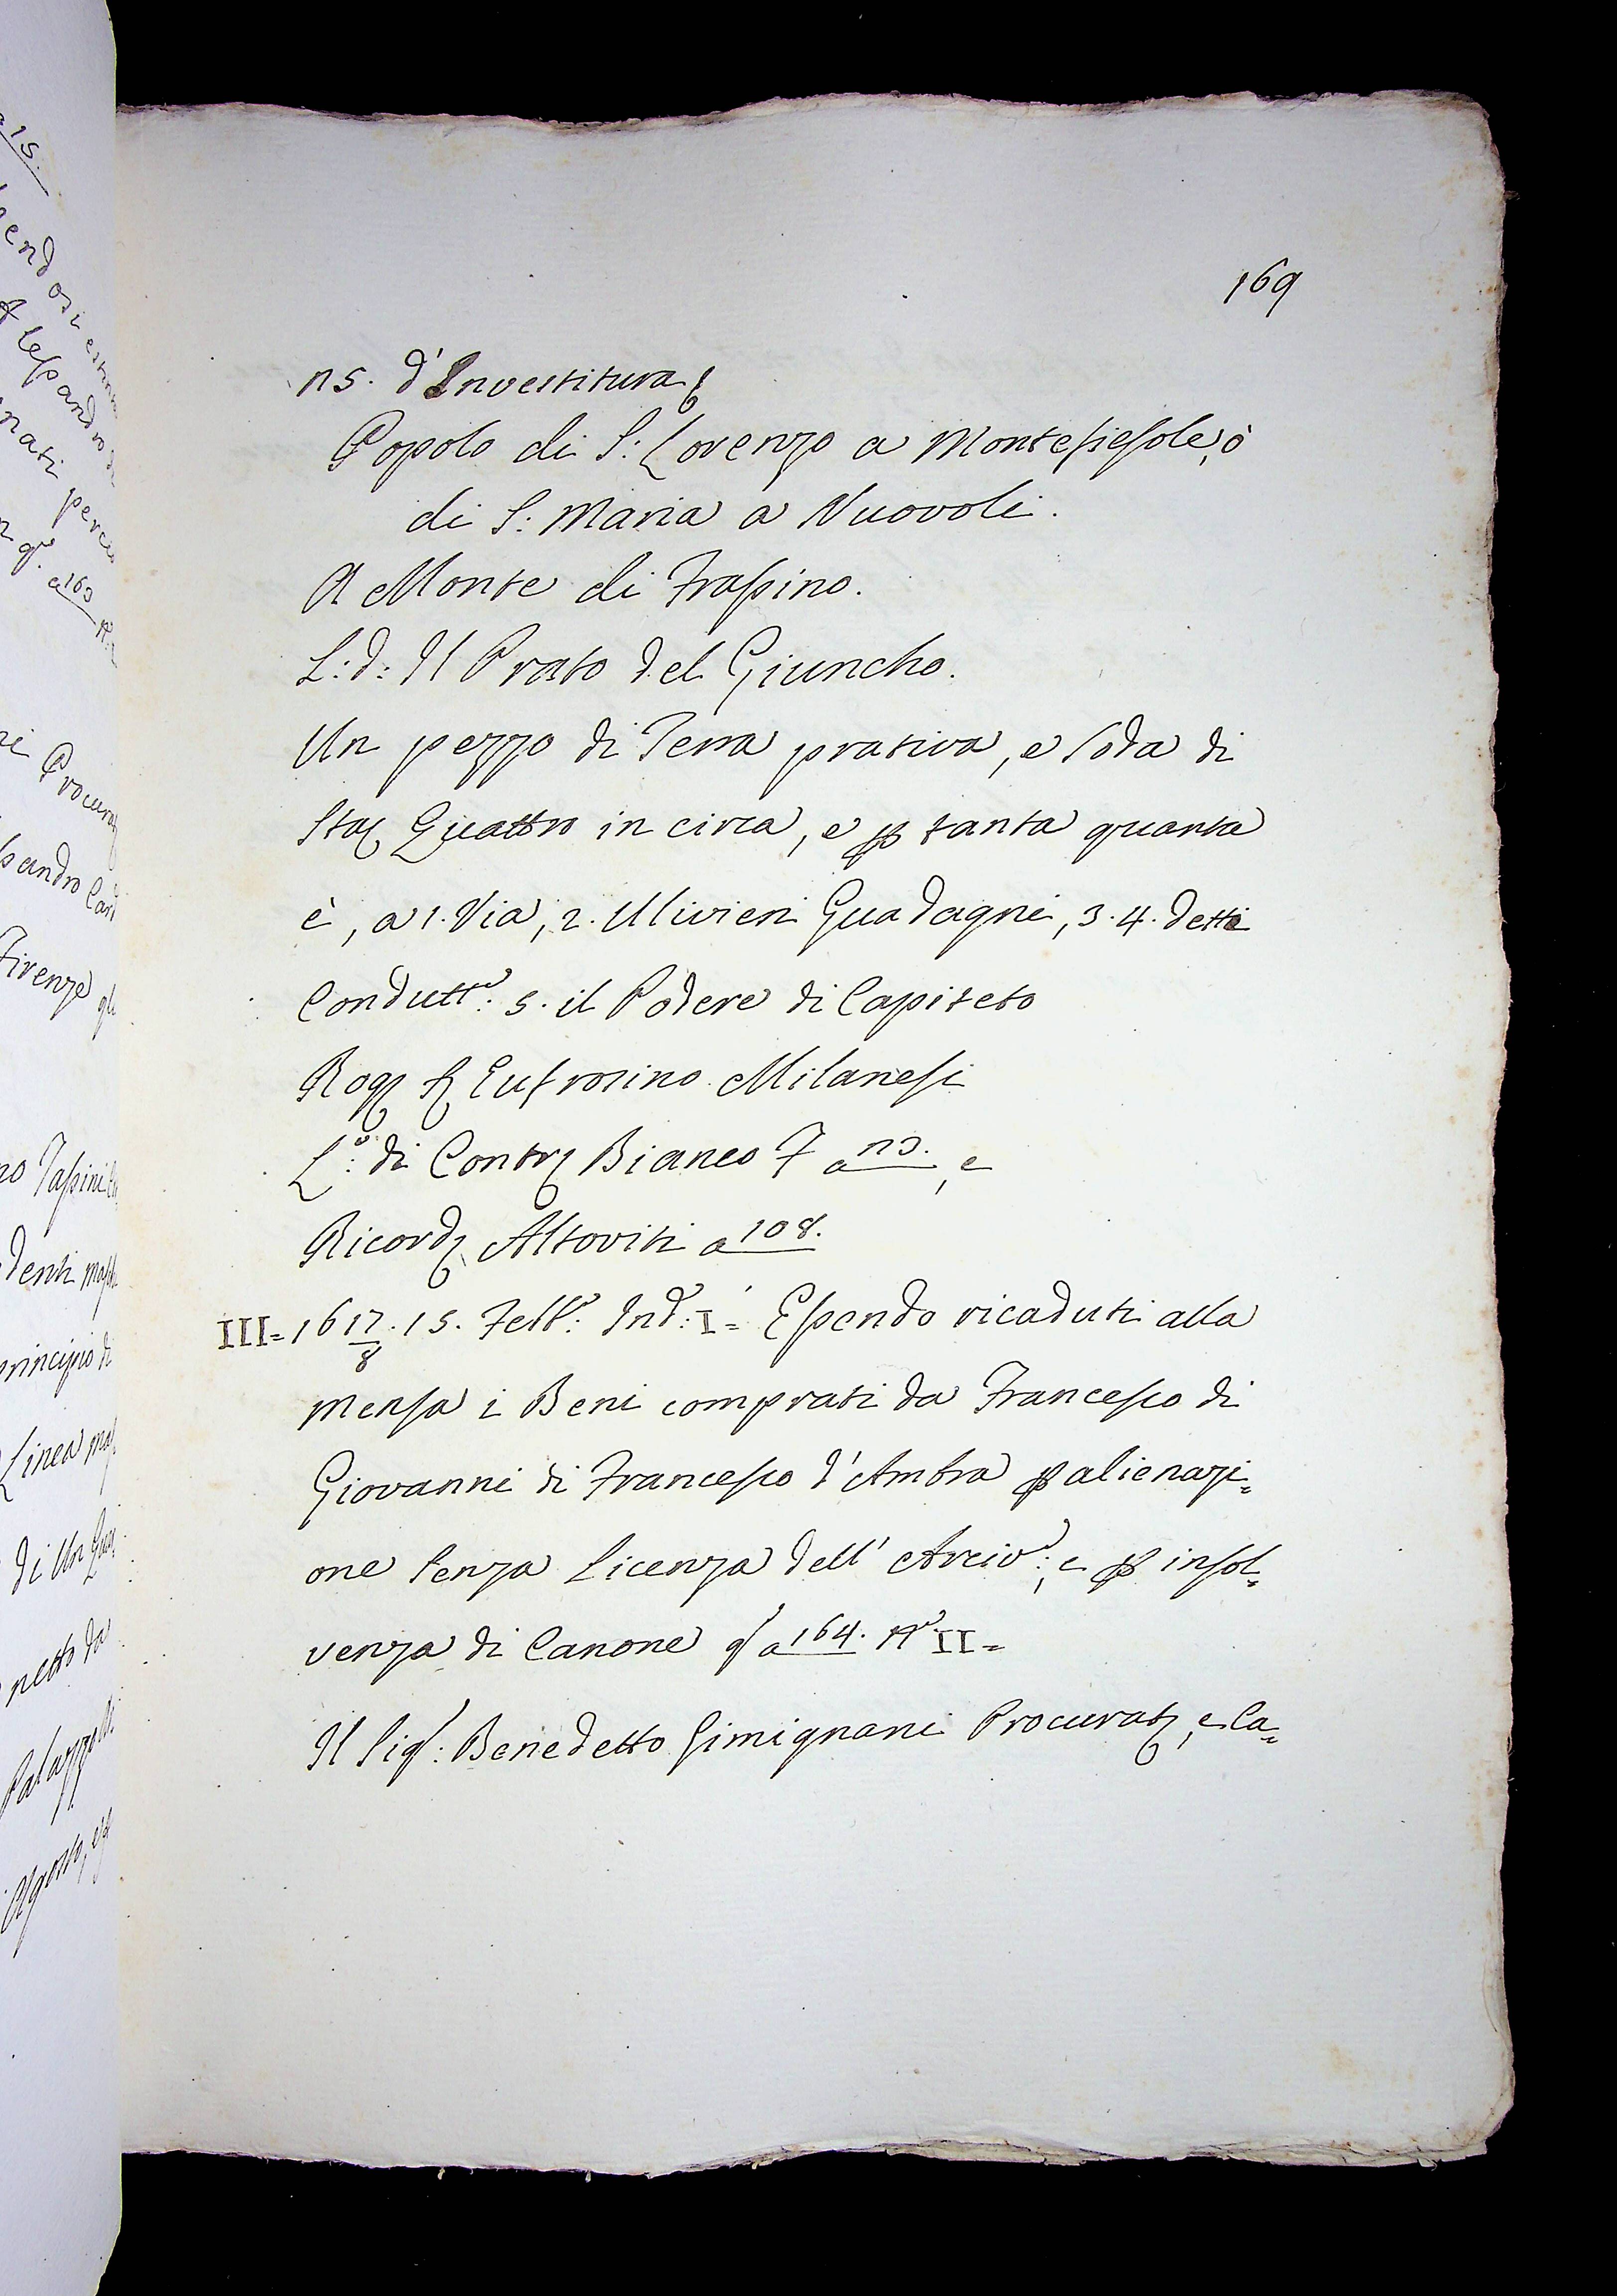 169
15. d'Investitura
Popolo di S: Lorenzo a Montefiesole, ò
di S: Maria a Nuovoli.
A Monte di Frassino.
L: d: Il Prato del Giuncho.
Un pezzo di Terra prativa, e soda di
Sta Quattro in circa, e p tanta quanta
è, a 1. Via, 2. Ulivieri Guadagni, 3. 4. detti
Condutt.: 5. il Podere di Capiteto
Rog S Eufrosino Milanesi
L.o di Contr Bianco F a 113., e
Ricord Altoviti a 108.
III= 1617/8. 15. Febb.o: Ind.: I= Essendo ricaduti alla
Mensa i Beni comprati da Francesco di
Giovanni di Francesco d'Ambra p alienazi=
one senza licenza dell' Arciv.o:, e p insol=
venza di Canone q a 164. N.o II=
Il Sig.: Benedetto Gimignani Procurat, e Ca=
15.
Procurat
Firenze
principio di
Linea
di Un
netto da